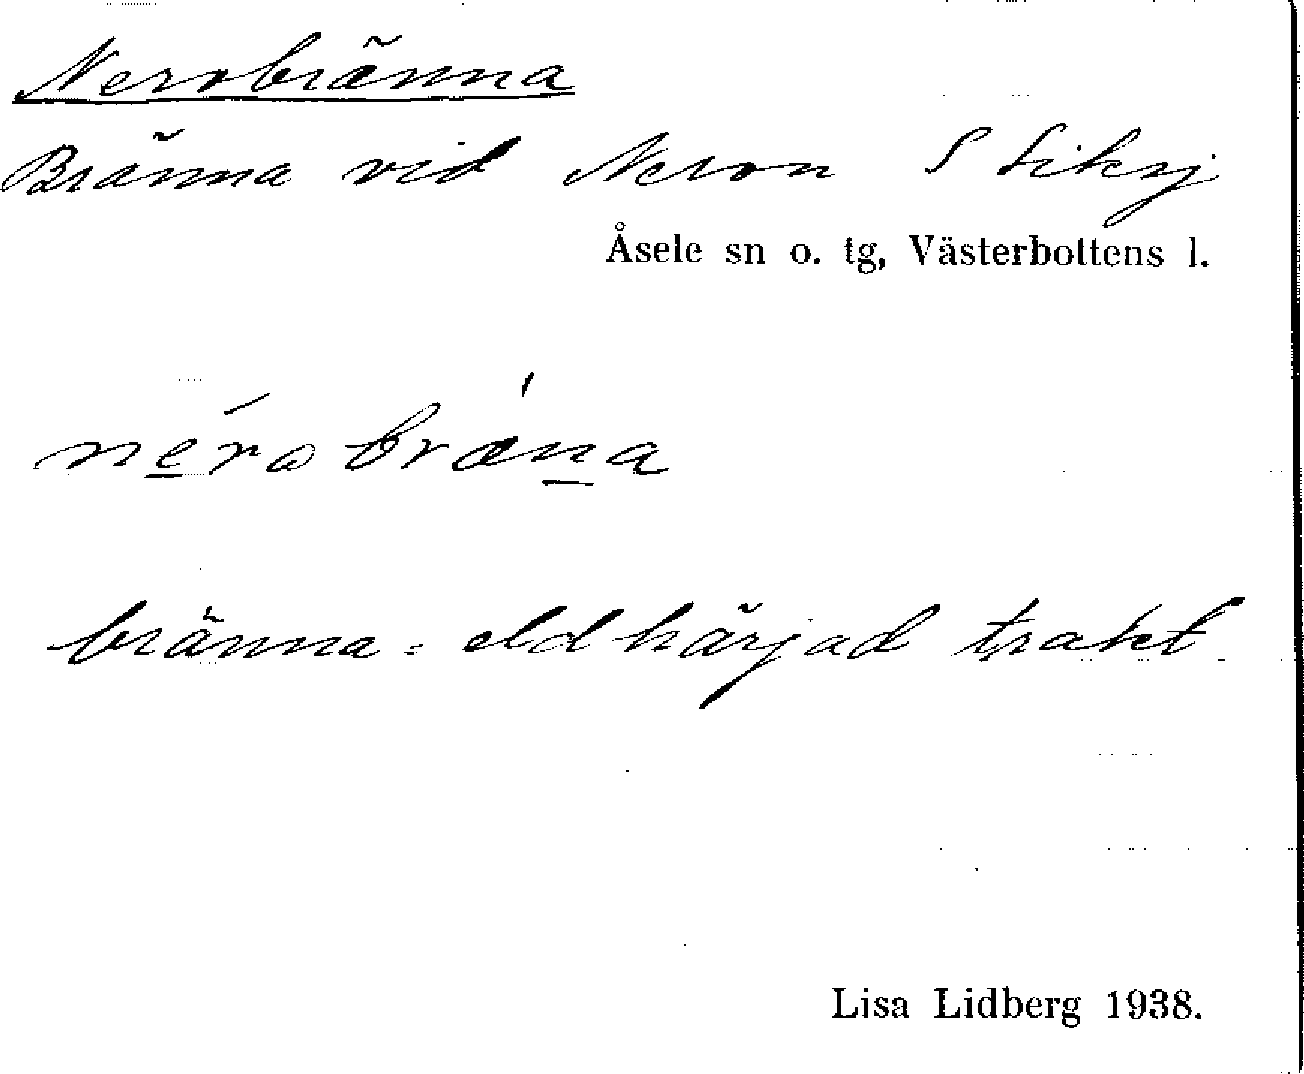 Nerobränna
Bränna vid Neron S
Åsele sn o. tg, Västerbottens l.
nérobræna
bränna = eldhärjad trakt
Lisa Lidberg 1938.